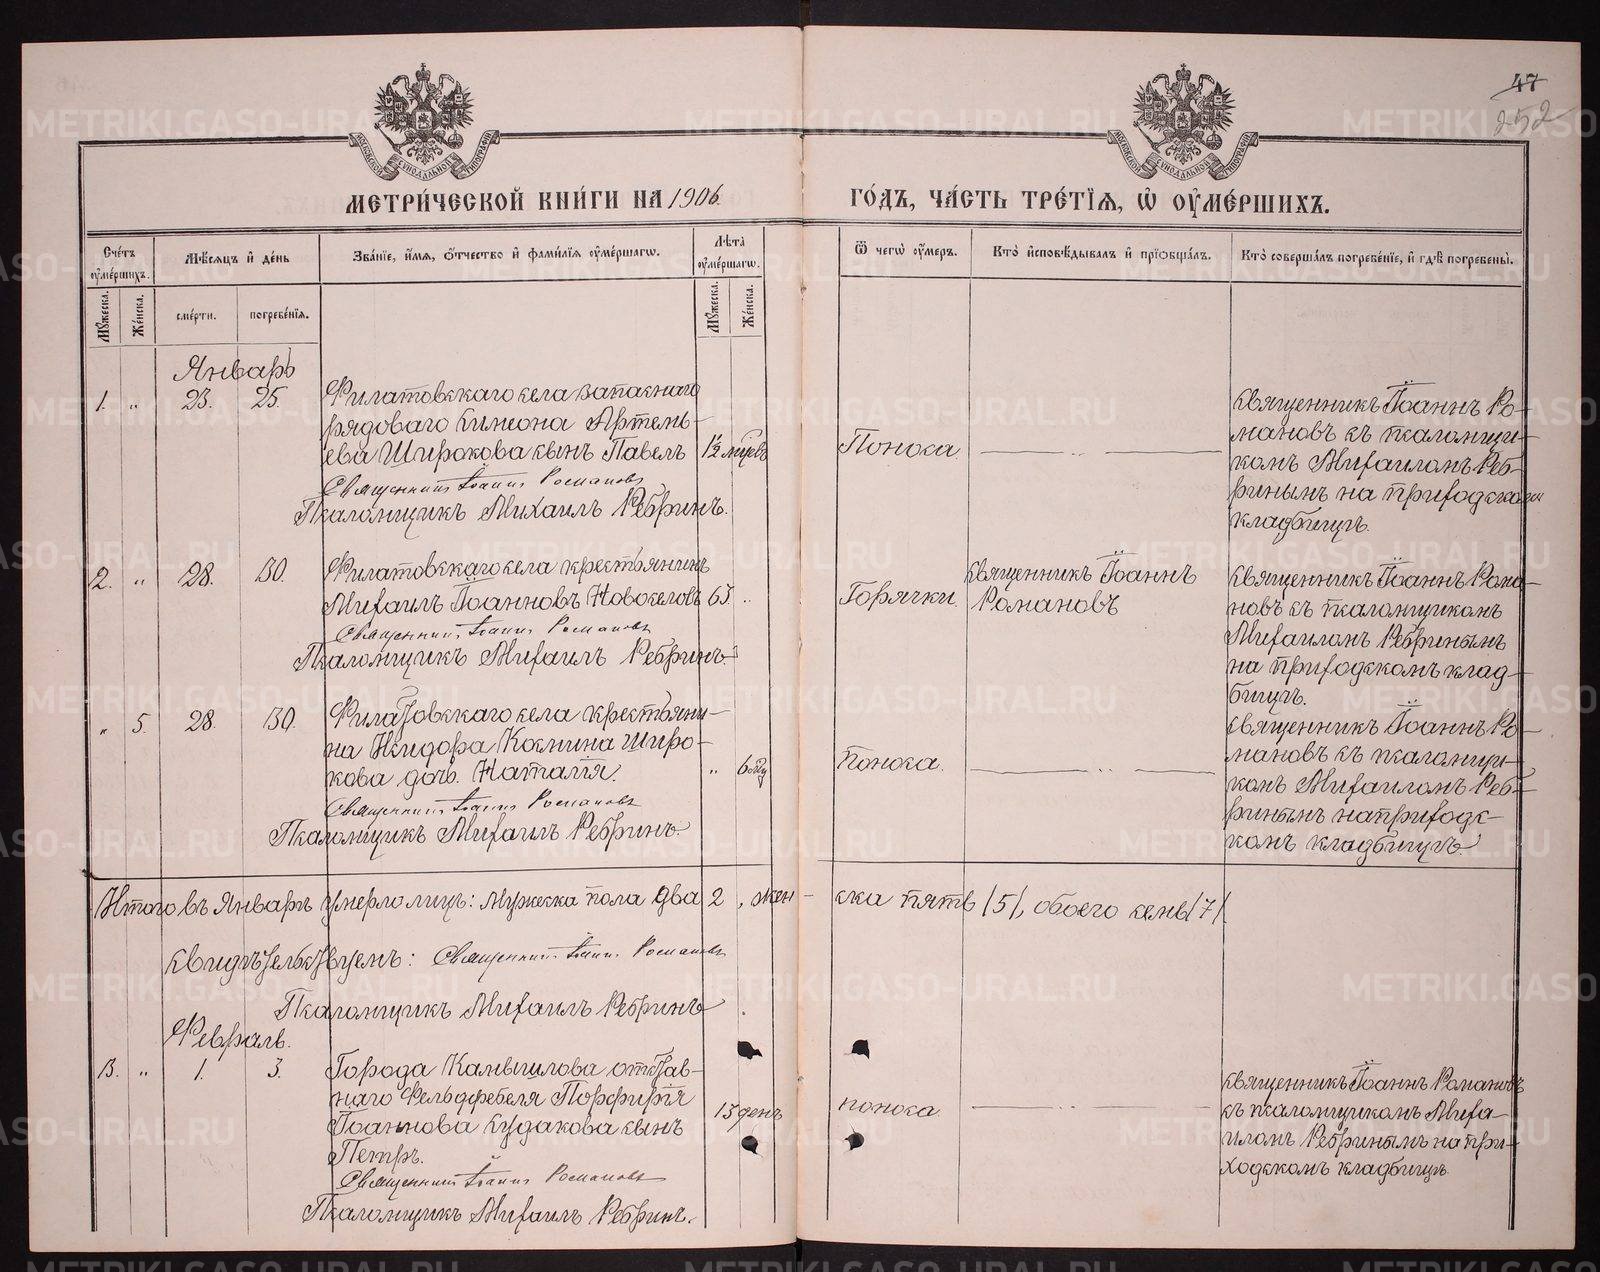 47
252
МЕТРИ́ЧЕСКОЙ КНИ́ГИ НА 1906.
ГО́ДЪ, ЧА́СТЬ ТРЕ́ТІѦ, Ѿ ОУМЕ́РШИХЪ.
Сче́тъ оуме́ршихъ.
Мѣ́сяцъ и де́нь
Зва́нїе, и́мѧ, о́тчество и фами́лїѧ оуме́ршагѡ.
Лѣта̀ оуме́ршагѡ.
Ѿ чегѡ̀ оу́меръ.
Кто̀ исповѣ́дывалъ и прїѡбща́лъ.
Кто̀ соверша́лъ погребе́нїе, и гдѣ̀ погребены̀.
Мꙋ́жеска.
Же́нска.
сме́рти.
погребе́нїѧ.
Мꙋ́жеска.
Же́нска.
Январь
1. „ 23. 25.
Филатовскаго села запаснаго
рядоваго Симеона Артемь-
ева Широкова сынъ Павелъ
1½ мѣсяцъ
Священникъ Іоаннъ Романовъ
Псаломщикъ Михаилъ Ребринъ.
Поноса.
Священникъ Іоаннъ Ро-
мановъ съ псаломщи-
комъ Михаиломъ Реб-
ринымъ на приходскомъ
кладбищѣ.
2. „ 28. 30.
Филатовскаго села крестьянинъ
Михаилъ Іоанновъ Новоселовъ
63. „
Священникъ Іоаннъ Романовъ
Псаломщикъ Михаилъ Ребринъ.
Горячки.
Священникъ Іоаннъ
Романовъ
Священникъ Іоаннъ Рома-
новъ съ псаломщикомъ
Михаиломъ Ребринымъ
на приходскомъ клад-
бищѣ.
„ 5. 28. 30.
Филатовскаго села крестьяни-
на Исидора Космина Широ-
кова дочь Наталія.
„ 6
Священникъ Іоаннъ Романовъ
Псаломщикъ Михаилъ Ребринъ.
Поноса.
Священникъ Іоаннъ Ро-
мановъ съ псаломщи-
комъ Михаиломъ Реб-
ринымъ на приходс-
комъ кладбищѣ.
Итого въ Январѣ умерло лицъ: мужеска пола два 2, жен-
ска пять /5/, обоего семь /7/.
Свидѣтельствуемъ: Священникъ Іоаннъ Романовъ
Псаломщикъ Михаилъ Ребринъ
Февраль.
3. „ 1. 3.
Города Камышлова отстав-
наго Фельдфебеля Порфирія
Іоаннова Кудакова сынъ
Петръ.
13 день
Священникъ Іоаннъ Романовъ
Псаломщикъ Михаилъ Ребринъ.
поноса.
Священникъ Іоаннъ Романовъ
съ псаломщикомъ Миха-
иломъ Ребринымъ на при-
ходскомъ кладбищѣ
METRIKI.GASO-URAL.RU